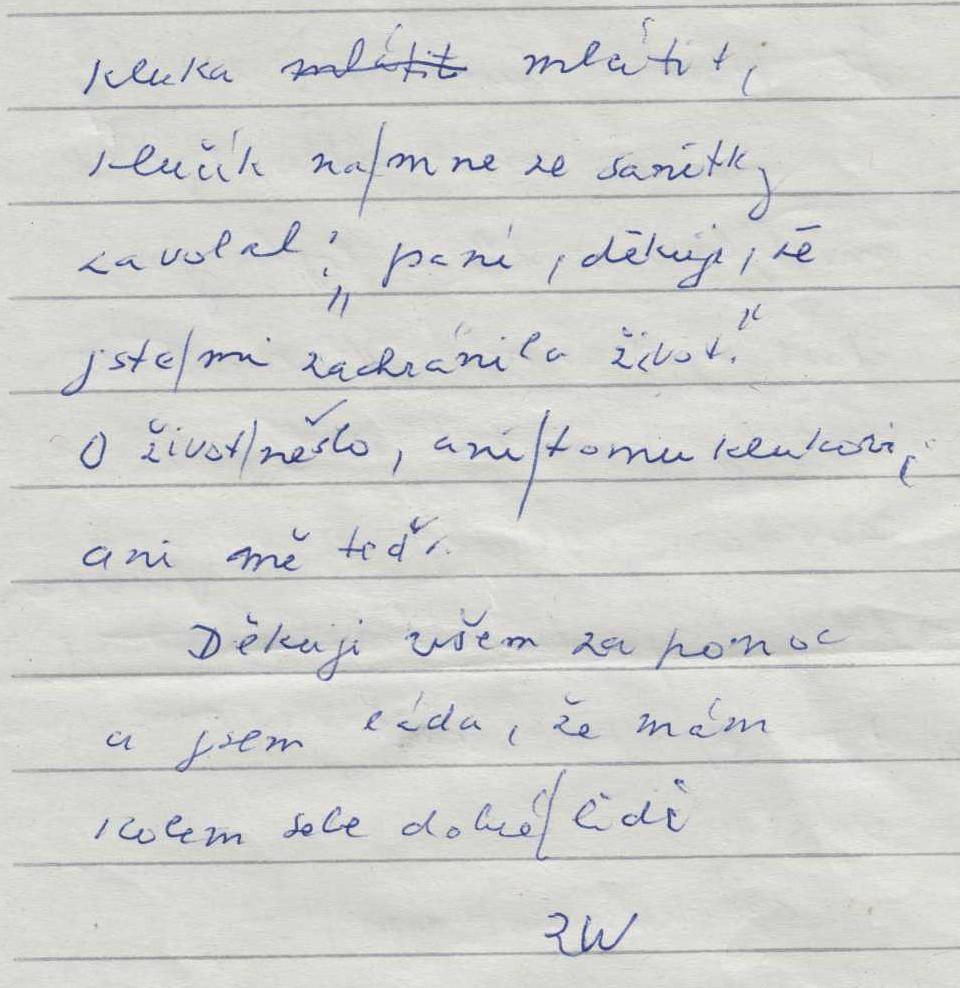 kluka mlátit mlátit,
klučík na/mne ze sanitky
zavolal: „paní, děkuji, že
jste/mi zachránila život."
O život/nešlo, ani/tomu klukovi,
ani mě teď.
Děkuji všem za pomoc
a jsem ráda, že mám
kolem sebe dobré/lidi
ZW